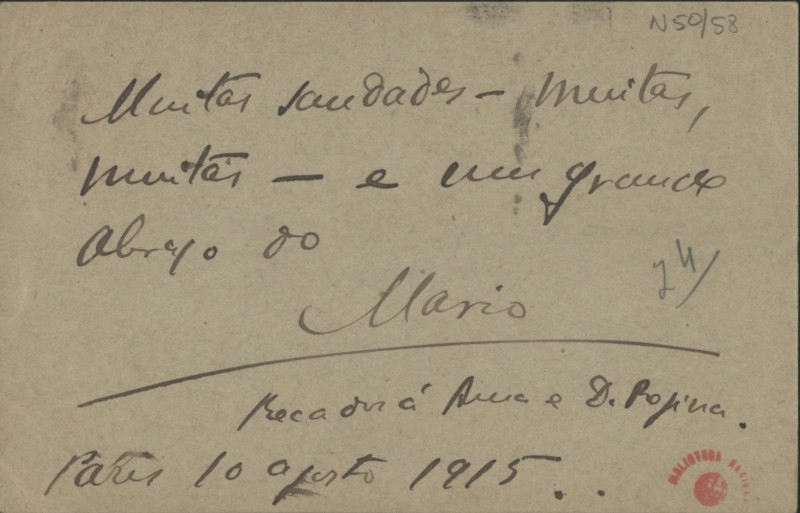 N50/58
Muitas saudades – muitas,
muitas – e um grande
abraço do
Mario
Recados á Ama e D. Rosina.
Paris 10 agosto 1915..
BIBLIOTECA NACIONAL